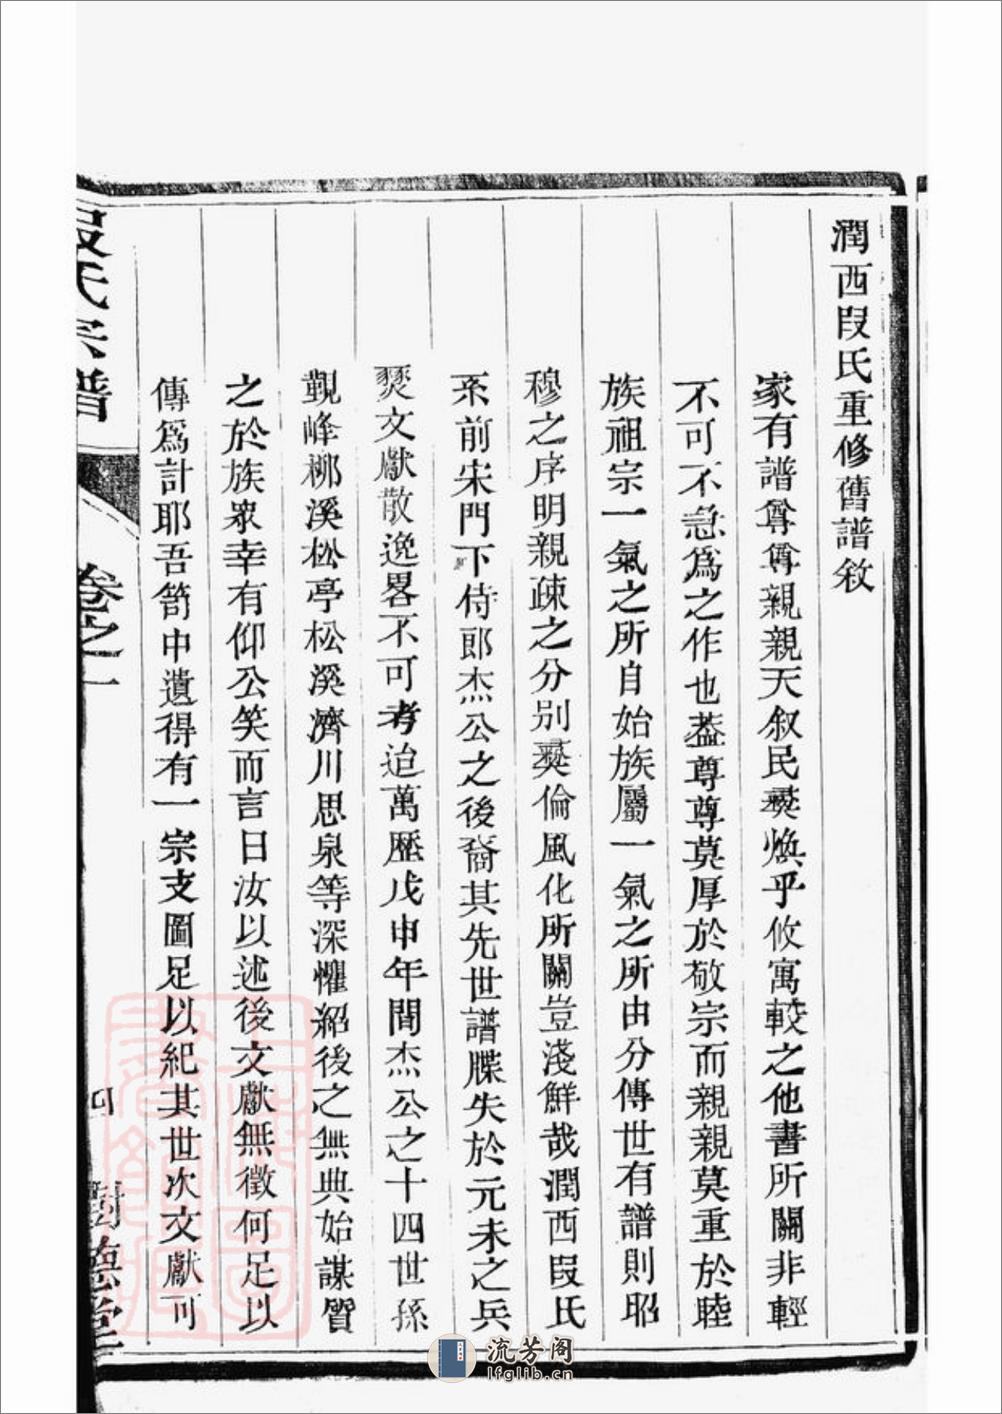 潤西叚氏重修舊譜敘
家有譜尊尊親親天叙民彛煥乎攸寓較之他書所關非輕
不可不急爲之作也葢尊尊莫厚於敬宗而親親莫重於睦
族祖宗一氣之所自始族屬一氣之所由分傳世有譜則昭
穆之序明親疎之分別彛倫風化所關豈淺鮮哉潤西叚氏
系前宋門下侍郎杰公之後裔其先世譜牒失於元末之兵
爕文獻散逸畧不可考迨萬歷戊申年間杰公之十四世孫
覲峰栁溪松亭松溪濟川思泉等深懼紹後之無典始謀質
之於族眾幸有仰公笑而言曰汝以述後文獻無徵何足以
傳爲計耶吾笥中遺得有一宗支圖足以紀其世次文獻可
叚氏宗譜
卷之一
四
德堂
流芳阁
lfglib.cn